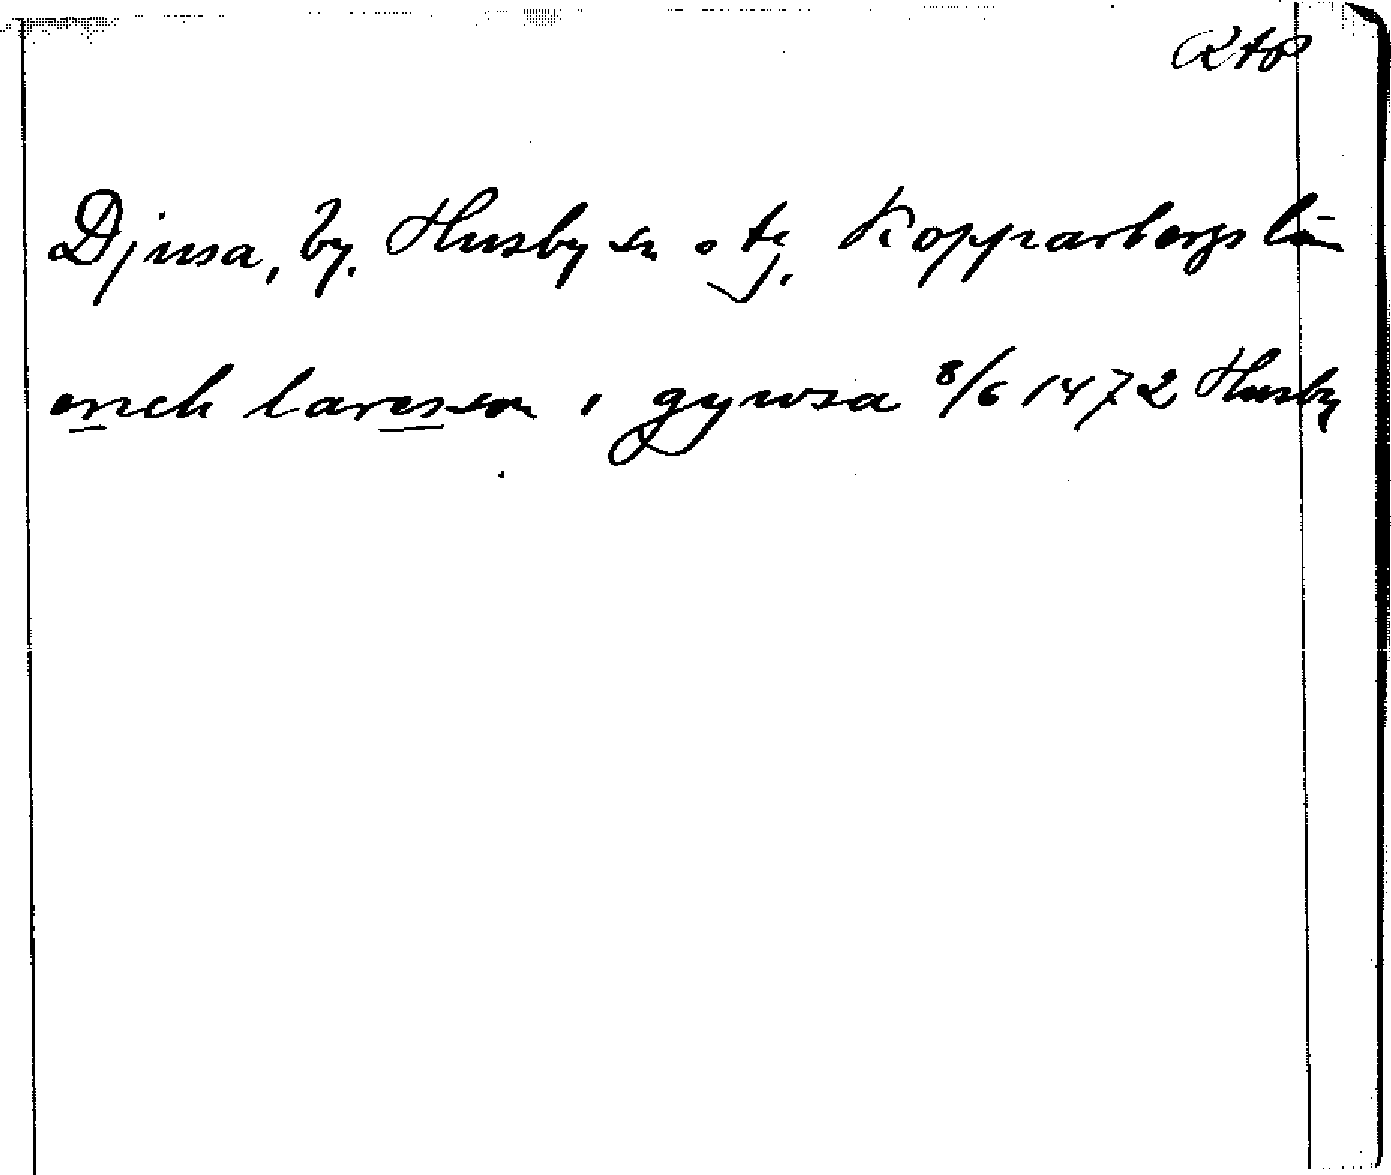 RAP
Djusa, by. Husby sn o tg. Kopparbergs län
erich laresson i gywsa 8/6 1472 Husby